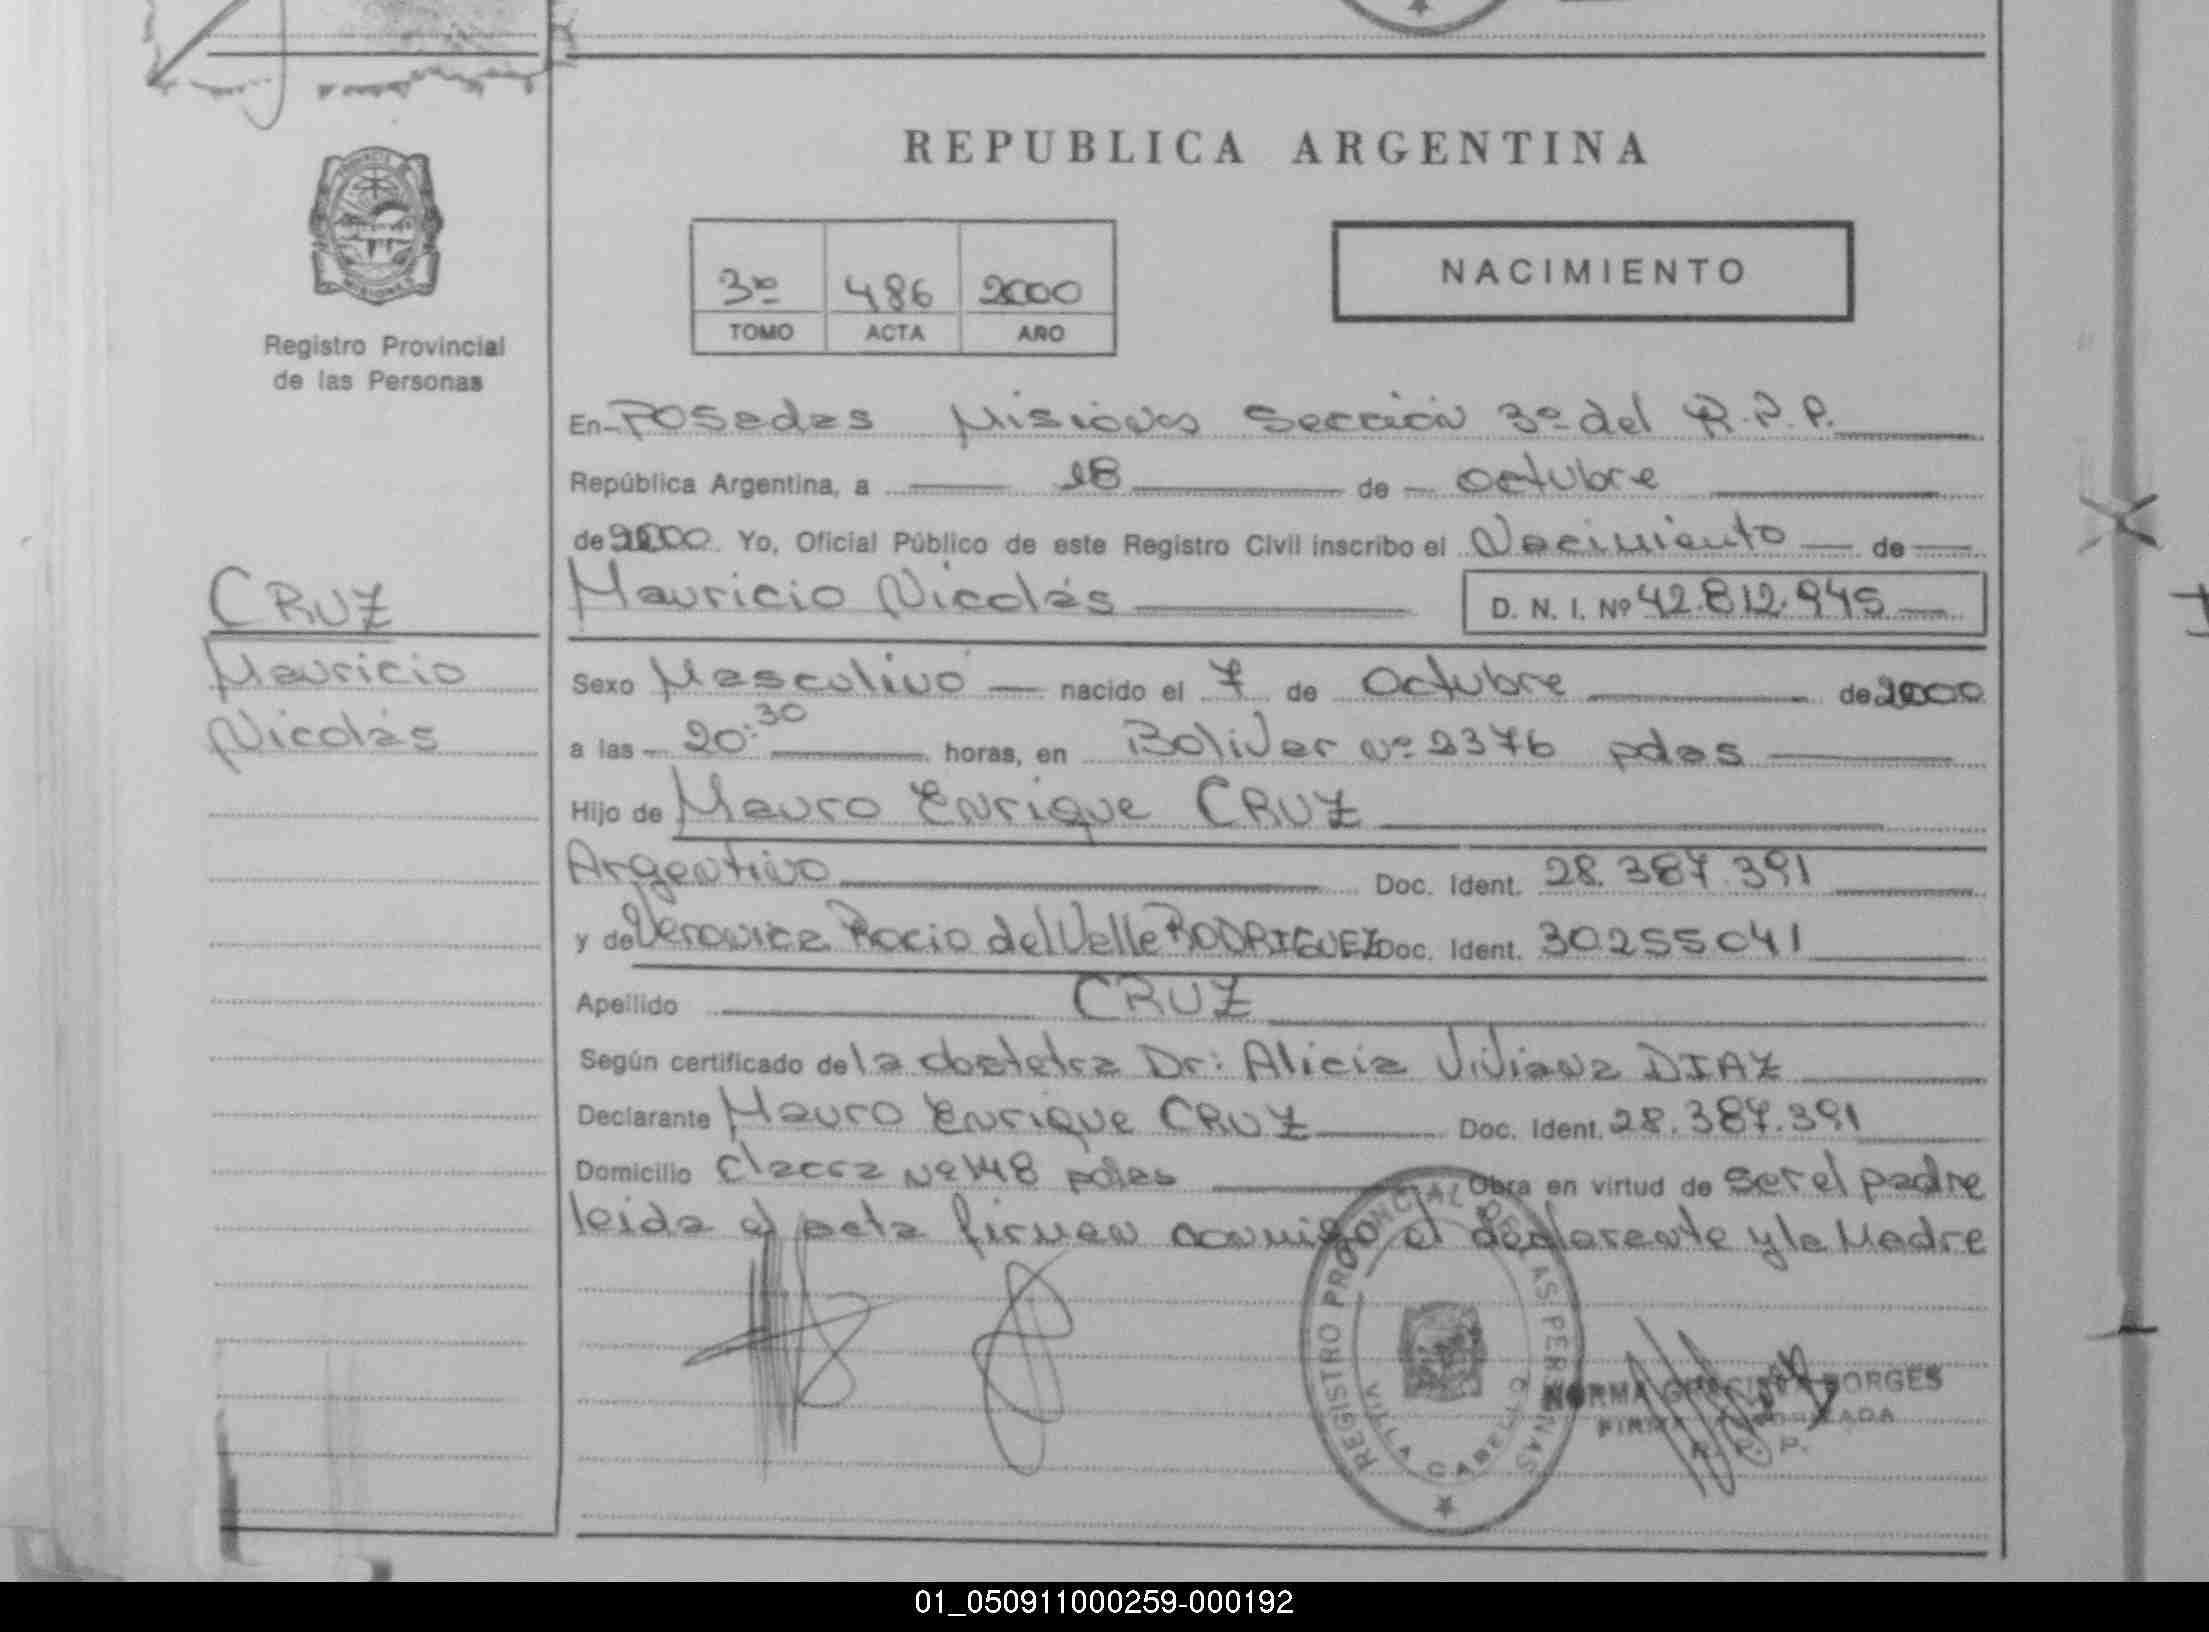 REPUBLICA ARGENTINA
MISIONES
Registro Provincial
de las Personas
3ro 486 2000
TOMO ACTA AÑO
NACIMIENTO
En Posadas Misiones Sección 3º del R.P.P.
República Argentina, a 18 de octubre
de 2000. Yo, Oficial Público de este Registro Civil inscribo el Nacimiento de
Mauricio Nicolás D. N. I. Nº 42.812.945
CRUZ
Mauricio
Nicolás
Sexo Masculino nacido el 7 de Octubre de 2000
a las 20:30 horas, en Bolivar Nº 2376 pdas
Hijo de Mauro Enrique CRUZ
Argentino Doc. Ident. 28.387.391
y de Veronica Rocio del Valle RODRIGUEZ Doc. Ident. 30255041
Apellido CRUZ
Según certificado de la obstetra Dr: Alicia Viviana DIAZ
Declarante Mauro Enrique CRUZ Doc. Ident. 28.387.391
Domicilio Chacra Nº 148 pdas Obra en virtud de ser el padre
leida el acta firman conmigo el declarante y la Madre
REGISTRO PROVINCIAL DE LAS PERSONAS
VILLA CABELLO
NORMA GRACIELA BORGES
FIRMA AUTORIZADA
R. P. P.
01_050911000259-000192